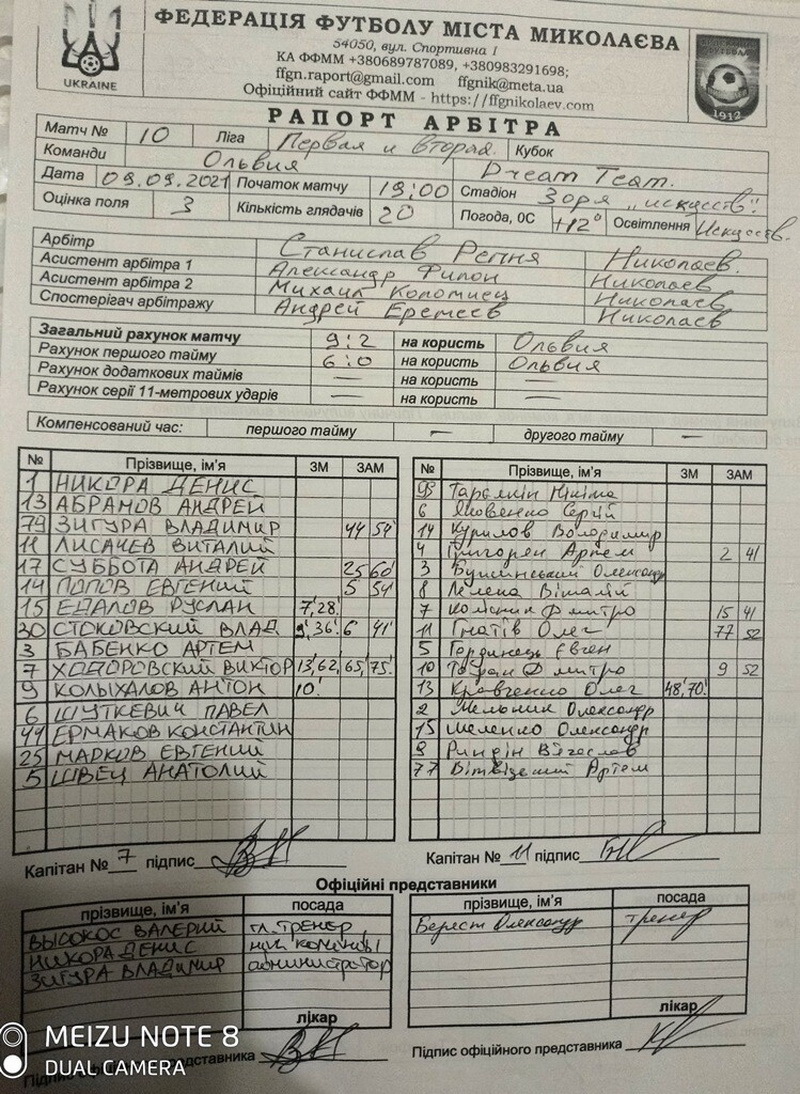 ФЕДЕРАЦІЯ ФУТБОЛУ МІСТА МИКОЛАЄВА
54050, вул. Спортивна 1
КА ФФММ +380689787089, +380983291698;
ffgn.raport@gmail.com ffgnik@meta.ua
Офіційний сайт ФФММ - https://ffgnikolaev.com
UKRAINE
1912
РАПОРТ АРБІТРА
Матч № 10 Ліга Первая и вторая. Кубок
Команди Ольвия Dream Team.
Дата 09.09.2021 Початок матчу 19:00 Стадіон Зоря "искусств".
Оцінка поля 3 Кількість глядачів 20 Погода, 0С +12° Освітлення Искусств.
Арбітр Станислав Репня Николаев.
Асистент арбітра 1 Александр Филон Николаев
Асистент арбітра 2 Михаил Коломиец Николаев
Спостерігач арбітражу Андрей Еремеев Николаев
Загальний рахунок матчу 9:2 на користь Ольвия
Рахунок першого тайму 6:0 на користь Ольвия
Рахунок додаткових таймів — на користь —
Рахунок серії 11-метрових ударів — на користь —
Компенсований час: першого тайму — другого тайму —
№ Прізвище, ім'я ЗМ ЗАМ
1 НИКОРА ДЕНИС
13 АБРАМОВ АНДРЕЙ
79 ЗИГУРА ВЛАДИМИР 44 54'
11 ЛИСАЧЕВ ВИТАЛИЙ
17 СУББОТА АНДРЕЙ 25 60'
14 ПОПОВ ЕВГЕНИЙ 5 54'
15 ЕДАЛОВ РУСЛАН 7,'28!
30 СТОКОВСКИЙ ВЛАД. 9,'36! 6 41'
3 БАБЕНКО АРТЕМ
7 ХОДОРОВСКИЙ ВИКТОР 13,'62, 65,' 75!
9 КОЛЫХАЛОВ АНТОН 10!
6 ШУТКЕВИЧ ПАВЕЛ
44 ЕРМАКОВ КОНСТАНТИН
25 МАРКОВ ЕВГЕНИЙ
5 ШВЕЦ АНАТОЛИЙ
№ Прізвище, ім'я ЗМ ЗАМ
93 Нікіта
6 Яковенко Сергій
14 Курилов Володимир
4 Григорян Артем 2 41
3 Олександр
8 Віталій
7 Дмитро 15 41
11 Гнатів Олег 77 52
5 Гординець Євген
10 Дмитро 9 52
13 Кравченко Олег 48,'70!
2 Мельник Олександр
15 Меленко Олександр
9 Риндін Вячеслав
77 Артем
Капітан № 7 підпис
Капітан № 11 підпис
Офіційні представники
прізвище, ім'я посада
ВЫСОКОС ВАЛЕРИЙ гл. тренер
НИКОРА ДЕНИС нач команды
ЗИГУРА ВЛАДИМИР администратор
лікар
Підпис офіційного представника
прізвище, ім'я посада
Берест Олександр тренер
лікар
Підпис офіційного представника
MEIZU NOTE 8
DUAL CAMERA